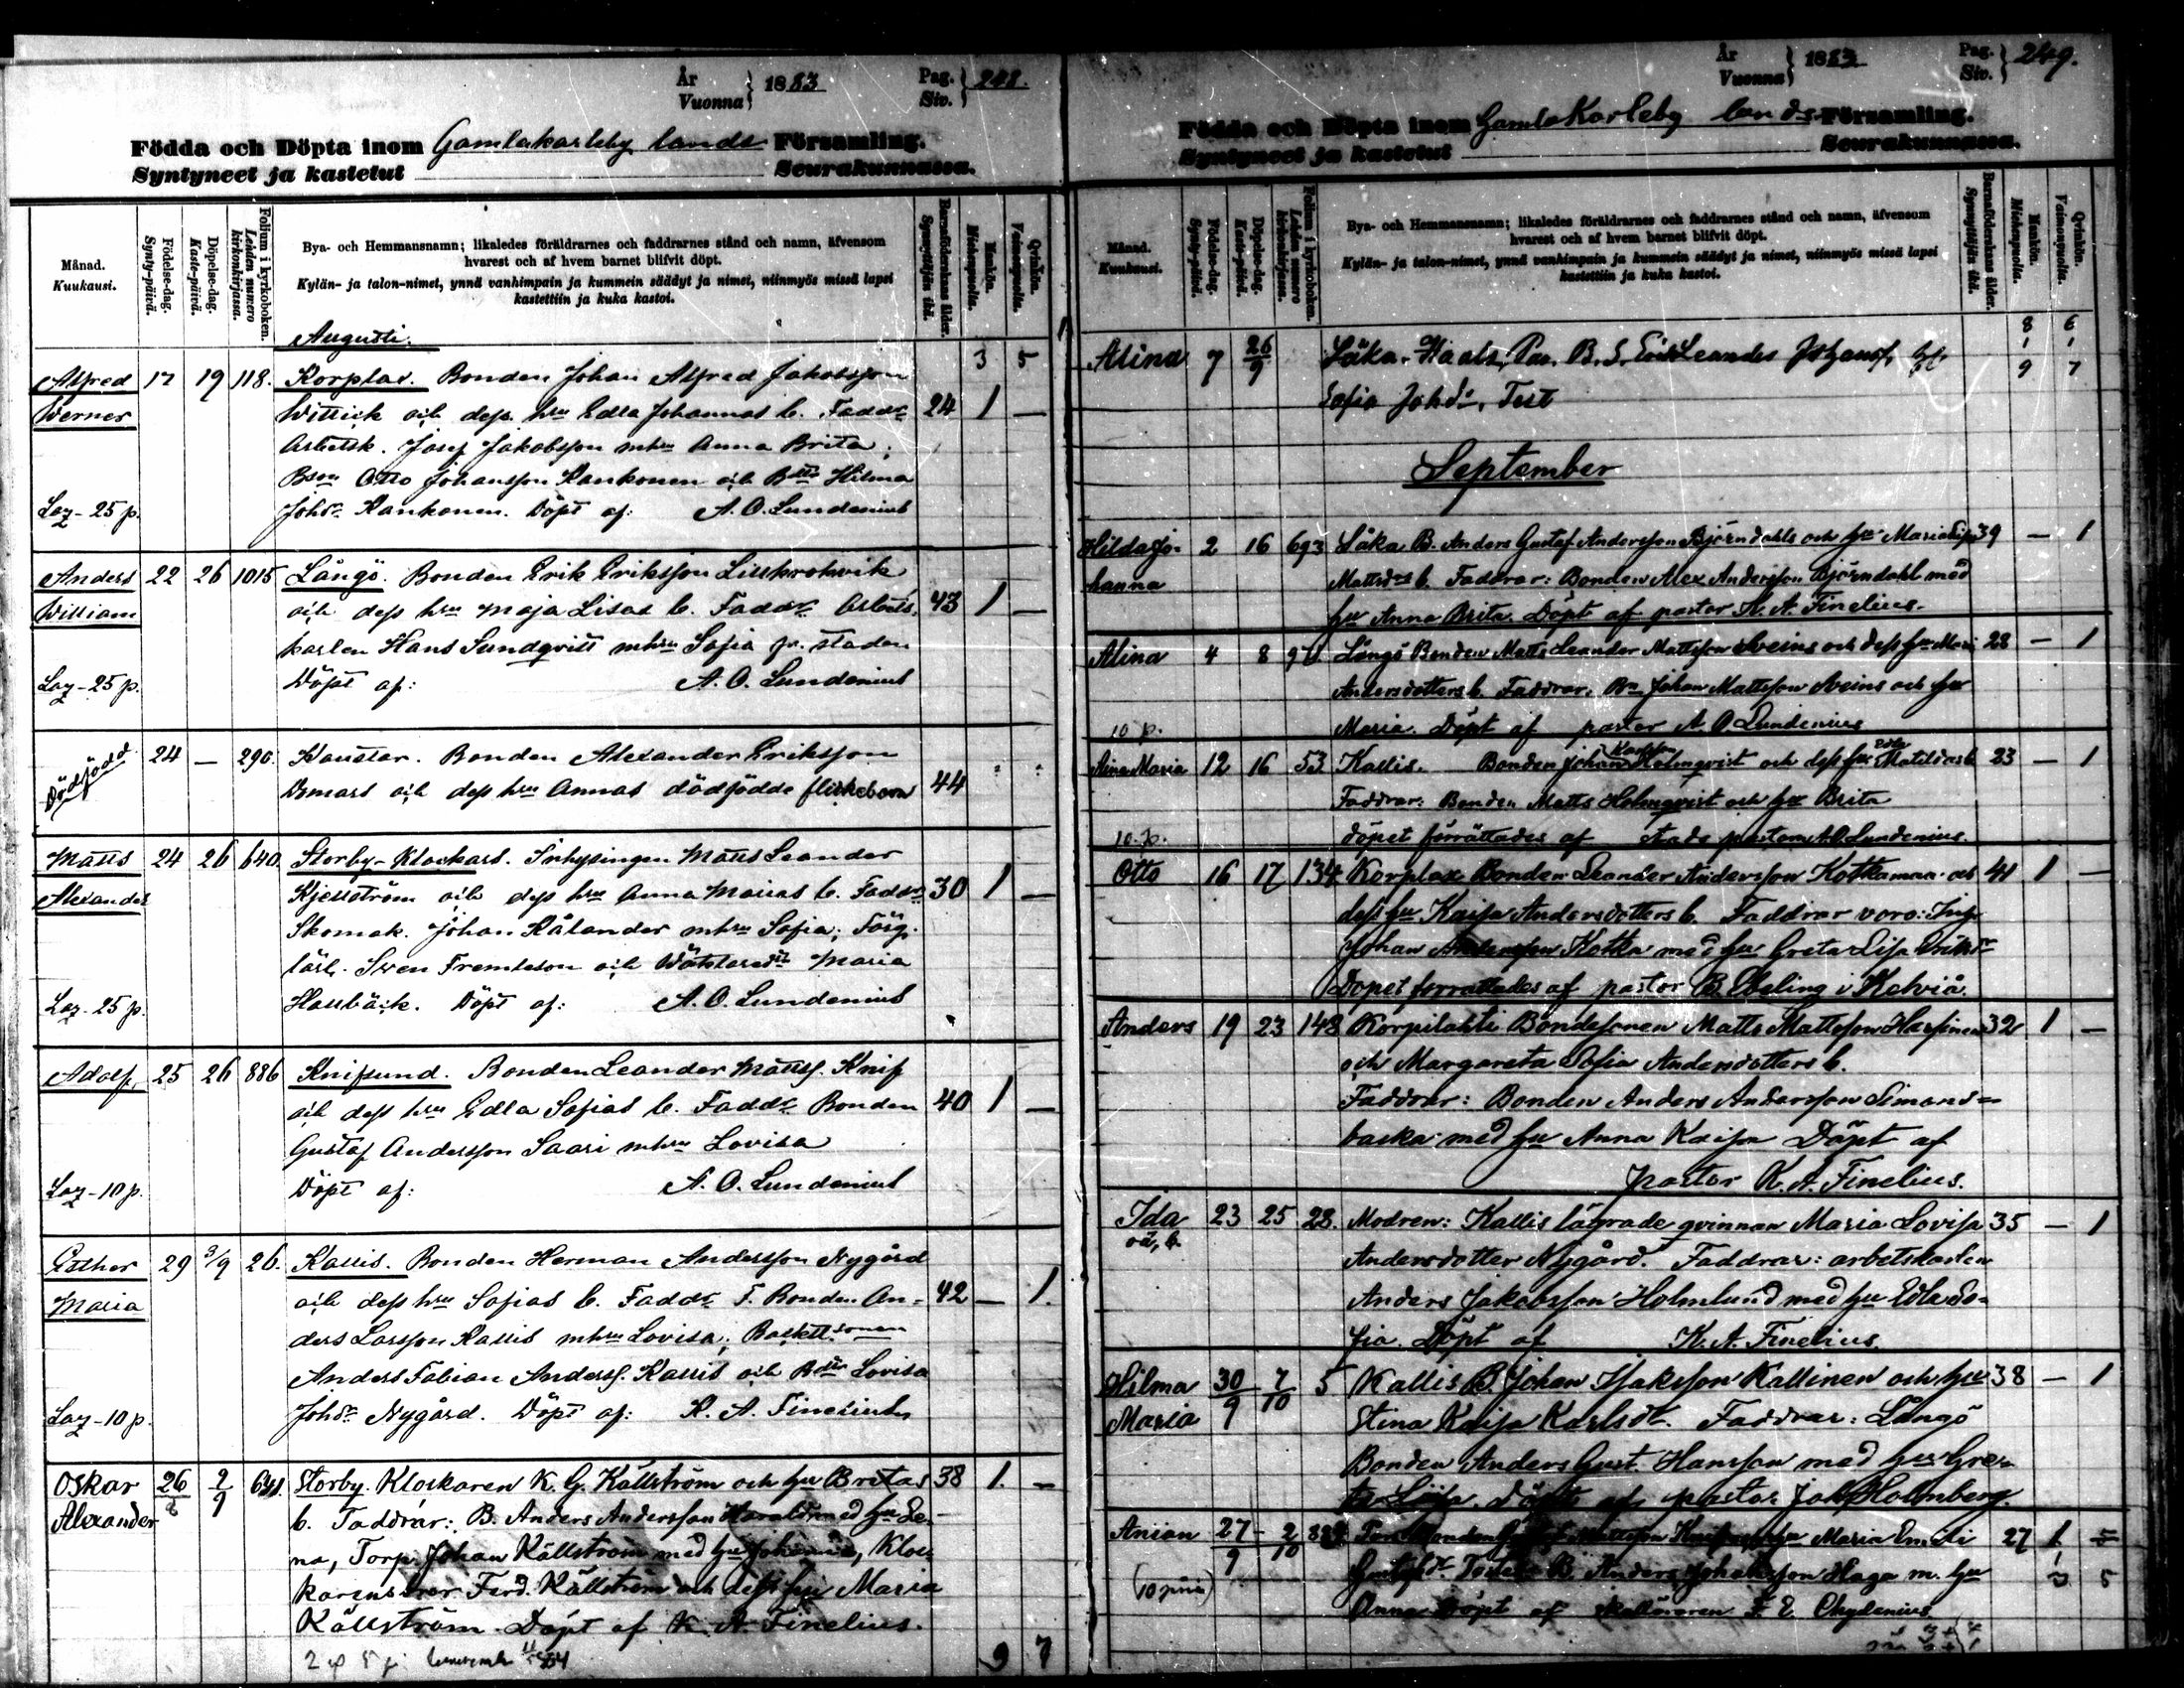 År
Vuonna } 1883
Pag.
Siv. } 248.
Födda och Döpta inom Gamlakarleby lands Församling.
Syntyneet ja kastetut Seurakunnassa.
Månad.
Kuukausi.
Födelse-dag.
Synty-päivä.
Döpelse-dag.
Kaste-päivä.
Folium i kyrkoboken.
Lehden numero kirkonkirjassa.
Bya- och Hemmansnamn; likaledes föräldrarnes och faddrarnes stånd och namn, äfvensom
hvarest och af hvem barnet blifvit döpt.
Kylän- ja talon-nimet, ynnä vanhimpain ja kummein säädyt ja nimet, niinmyös missä lapsi
kastettiin ja kuka kastoi.
Barnaföderskans ålder.
Synnyttäjän ikä.
Mankön.
Miehenpuolta.
Qvinkön.
Vaimonpuolta.
Augusti.
3 5
Alfred 17 19 118. Korplax. Bonden Johan Alfred Jakobsson
Werner Wittick och dess hru Edla Johannas b. Faddr 24 1 —
Arbetsk. Josef Jakobsson mhru Anna Brita;
Bson Otto Johansson Kankonen och Bdtr Hilma
Laz-25 p. Johdr Kankonen. Döpt af: A. O. Lundenius
Anders 22 26 1015 Långö. Bonden Erik Eriksson
William och dess hru Maja Lisas b. Faddr Arbets- 43 1 —
karlen Hans Sundqvist mhru Sofia fr. staden
Laz-25 p. Döpt af: A. O. Lundenius
Dödfödd 24 — 290. Bonden Alexander Eriksson
och dess hru Annas dödfödde flickebarn 44
Matts 24 26 640. Storby-Klockars. Inhysingen Matts Leander
Alexander Kjellström och dess hru Anna Maias b. Faddr 30 1 —
Skomak. Johan Kålander mhru Sofia; Färg.
lärl. Sven och Maria
Laz-25 p. Döpt af: A. O. Lundenius
Adolf, 25 26 886 Knifsund. Bonden Leander Mattss. Knif
och dess hru Edla Sofias b. Faddr Bonden 40 1 —
Gustaf Andersson Saari mhru Lovisa
Laz-10 p. Döpt af: A. O. Lundenius
Esther 29 3/9 26. Kallis. Bonden Herman Andersson Nygård
Maria och dess hru Sofias b. Faddr F. Bonden An- 42 — 1.
ders Larsson Kallis mhru Lovisa;
Anders Fabian Anderss. Kallis och Bdtr Lovisa
Laz-10 p. Johdr Nygård. Döpt af: K. A. Finelius
Oskar 26/8 2/9 641. Storby. Klockaren K. G. Källström och hu Britas 38 1. —
Alexander b. Faddrar: B. Anders Andersson Harald med hu Le-
na, Torp. Johan Källström med hu Johanna, Kloc-
karens bror Ferd. Källström och dess hu Maria
Källström. Döpt af K. A. Finelius.
9 7
År
Vuonna } 1883
Pag.
Siv. } 249.
Födda och Döpta inom Gamla Karleby lands Församling.
Syntyneet ja kastetut Seurakunnassa.
Månad.
Kuukausi.
Födelse-dag.
Synty-päivä.
Döpelse-dag.
Kaste-päivä.
Folium i kyrkoboken.
Lehden numero kirkonkirjassa.
Bya- och Hemmansnamn; likaledes föräldrarnes och faddrarnes stånd och namn, äfvensom
hvarest och af hvem barnet blifvit döpt.
Kylän- ja talon-nimet, ynnä vanhimpain ja kummein säädyt ja nimet, niinmyös missä lapsi
kastettiin ja kuka kastoi.
Barnaföderskans ålder.
Synnyttäjän ikä.
Mankön.
Miehenpuolta.
Qvinkön.
Vaimonpuolta.
8 6
1 1
Alina 7 26/9 Såka. Par. B. S. Erik Leander 9 7
Sofia Johdr. Test
September
Hilda Jo- 2 16 693 Såka B. Anders Gustaf Andersson Björndahls och hu Maria Lisa 39 — 1
hanna Mattsdrs b. Faddrar: Bonden Alex Andersson Björndahl med
hu Anna Brita. Döpt af pastor K. A. Finelius.
Alina 4 8 Långö Bonden Matts Leander Mattsson Sveins och dess hu Maria 28 — 1
Andersdotters b. Faddrar. Bn Johan Mattsson Sveins och hu
10 p. Maria. Döpt af pastor A. O. Lundenius
Stina Maria 12 16 53 Kallis. Bonden Johan Karlsson Holmqvist och dess hu Edla Matildas b 23 — 1
Faddrar: Bonden Matts Holmqvist och hu Brita
10. p. döpet förrättades af pastorn A. O. Lundenius.
Otto 16 17 134 Korplax Bonden Leander Andersson Kotkamaa och 41 1 —
dess hu Kaisa Andersdotters b. Faddrar voro: Inh.
Johan Andersson Kotka med hu Greta Lisa
Döpet förrättades af pastor B. Ebeling i Kelviå.
Anders 19 23 148 Korpilahti Bondesonen Matts Mattsson 32 1 —
och Margareta Sofia Andersdotters b.
Faddrar: Bonden Anders Andersson Simons-
backa med hu Anna Kaisa Döpt af
pastor K. A. Finelius.
Ida 23 25 28. Modren: Kallis lägrade qvinnan Maria Lovisa 35 — 1
oä, b. Andersdotter Nygård. Faddrar: arbetskarlen
Anders Jakobsson Holmlund med hu Edla So-
fia. Döpt af K. A. Finelius.
Hilma 30/9 7/10 5 Kallis B. Johan Isaksson Kallinen och hu 38 — 1
Maria Stina Kaisa Karlsdr. Faddrar: Långö
Bonden Anders Gust. Hansson med hu Gre-
ta Lisa. Döpt af pastor Joh. Holmberg.
Anian 27/9 2/10 Bonden Mattsson hu Maria Emili 27 1
Gustafsdr B. Anders Johansson Haga m. hu 3 5
(10 p) Anna Döpt af F. E. Chydenius.